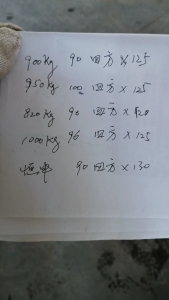 900kg 90 四方 × 125
950kg 100 四方 × 125
820kg 90 四方 × 120
1000kg 96 四方 × 125
90 四方 × 130